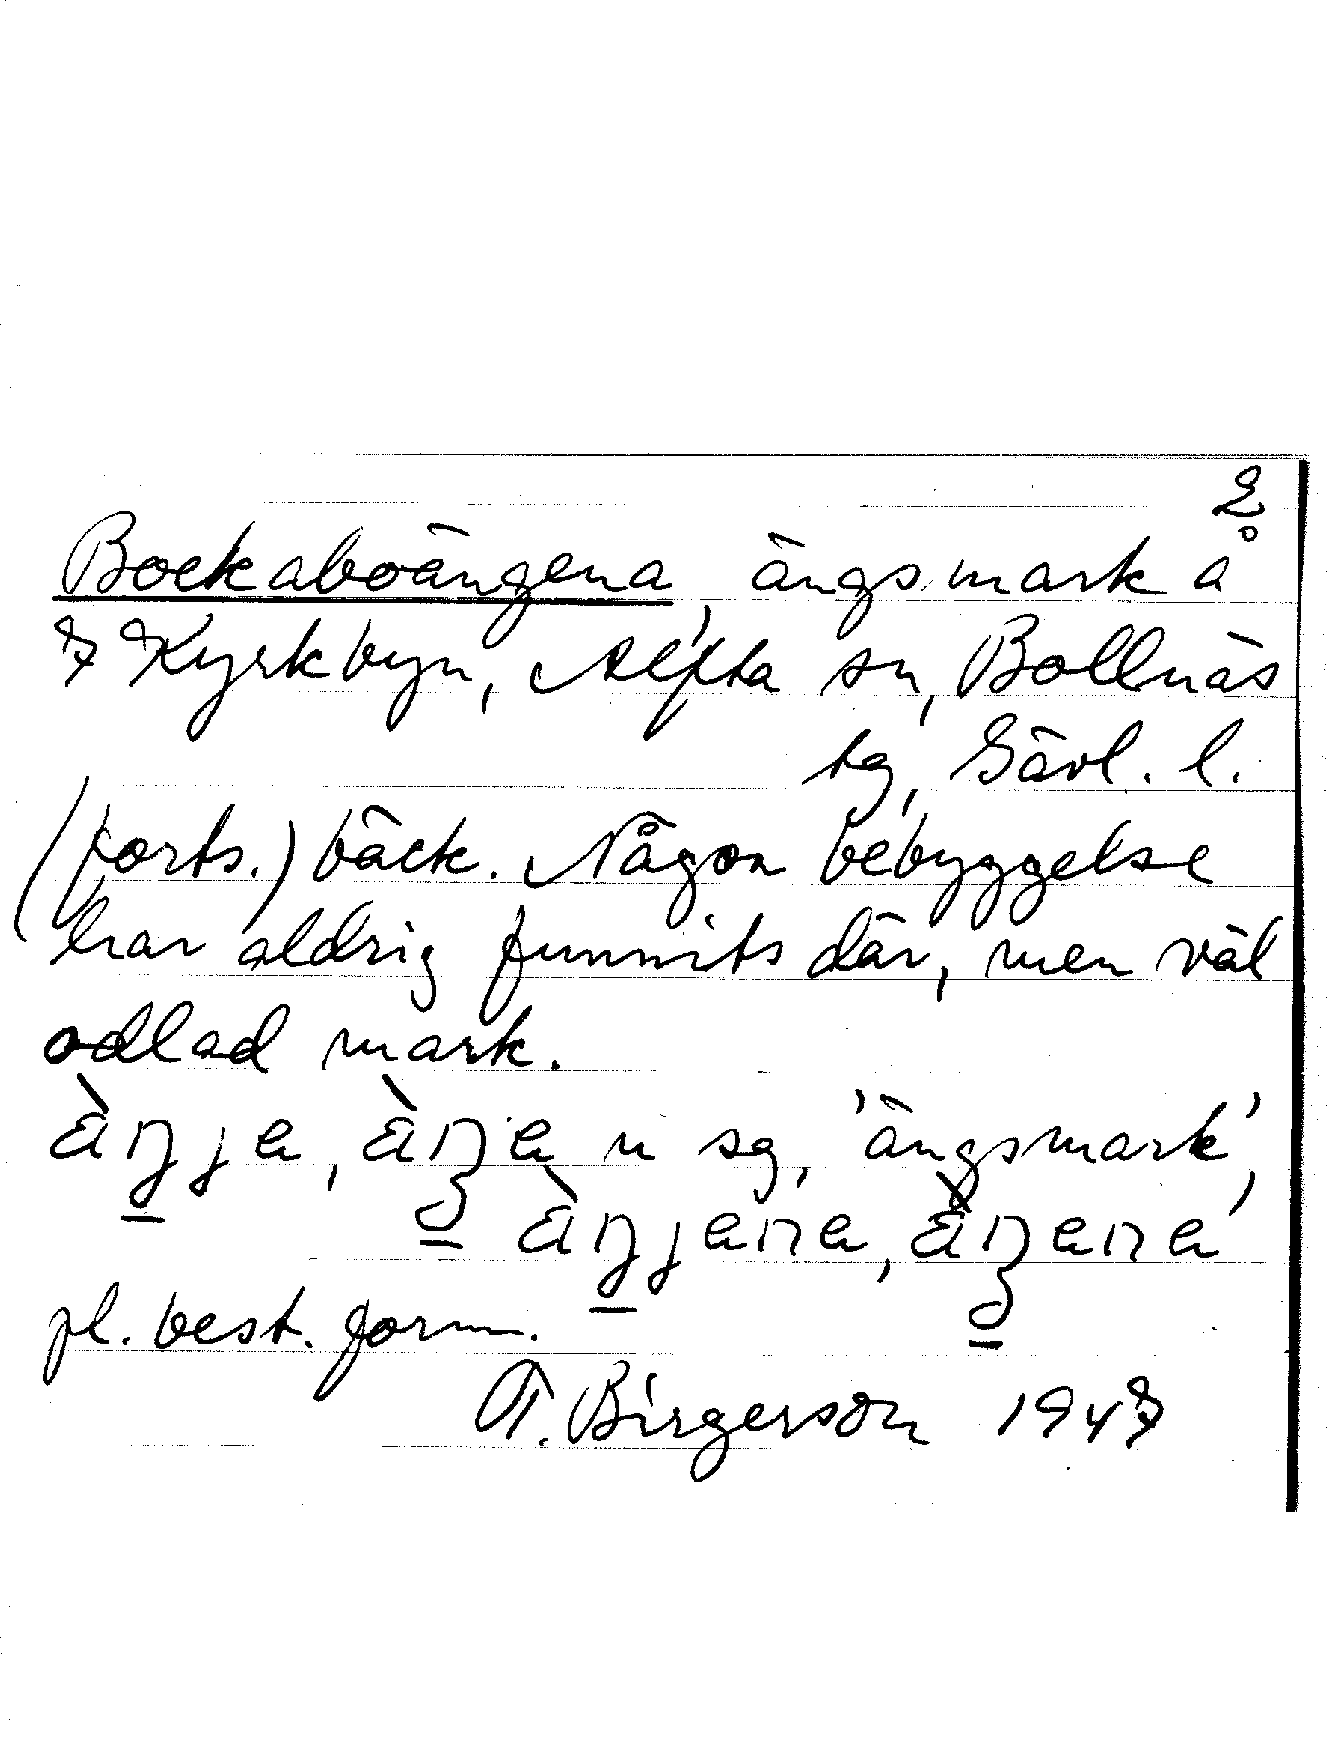 2
Bockaboängena, ängsmark å
7 Kyrkbyn, Alfta sn, Bollnäs
tg, Gävl. l.
(forts.) bäck. Någon bebyggelse
har aldrig funnits där, men väl
odlad mark.
n sg, 'ängsmark',
pl. best. form.
T. Birgerson 1947